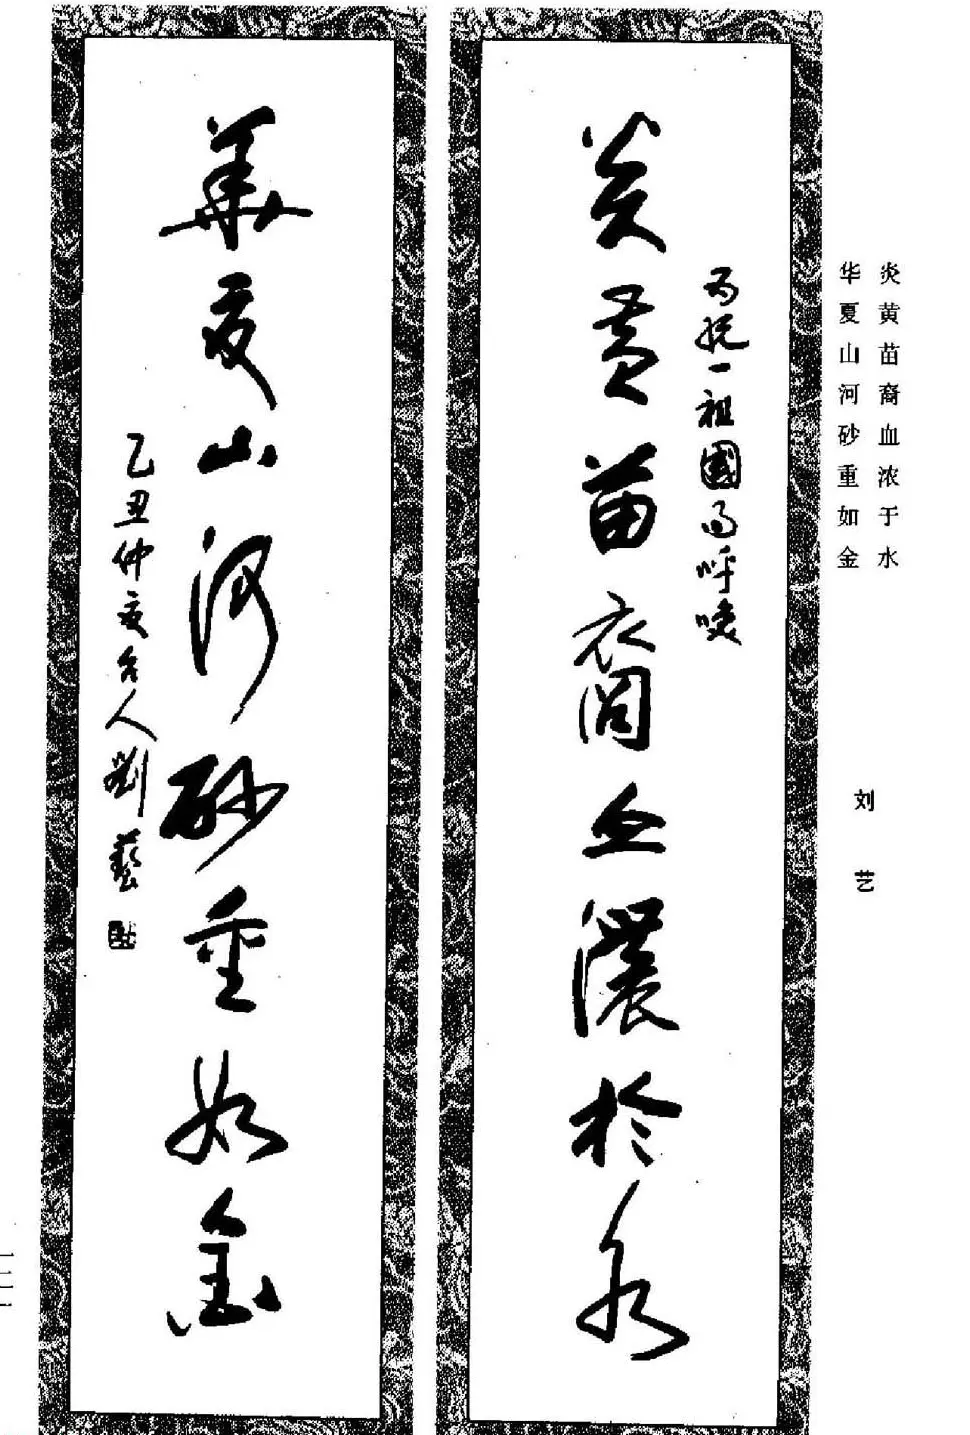 炎黄苗裔血浓于水
华夏山河砂重如金
刘艺
为统一祖國而呼唤
炎黄苗裔血濃於水
華夏山河砂重如金
乙丑仲夏台人劉藝